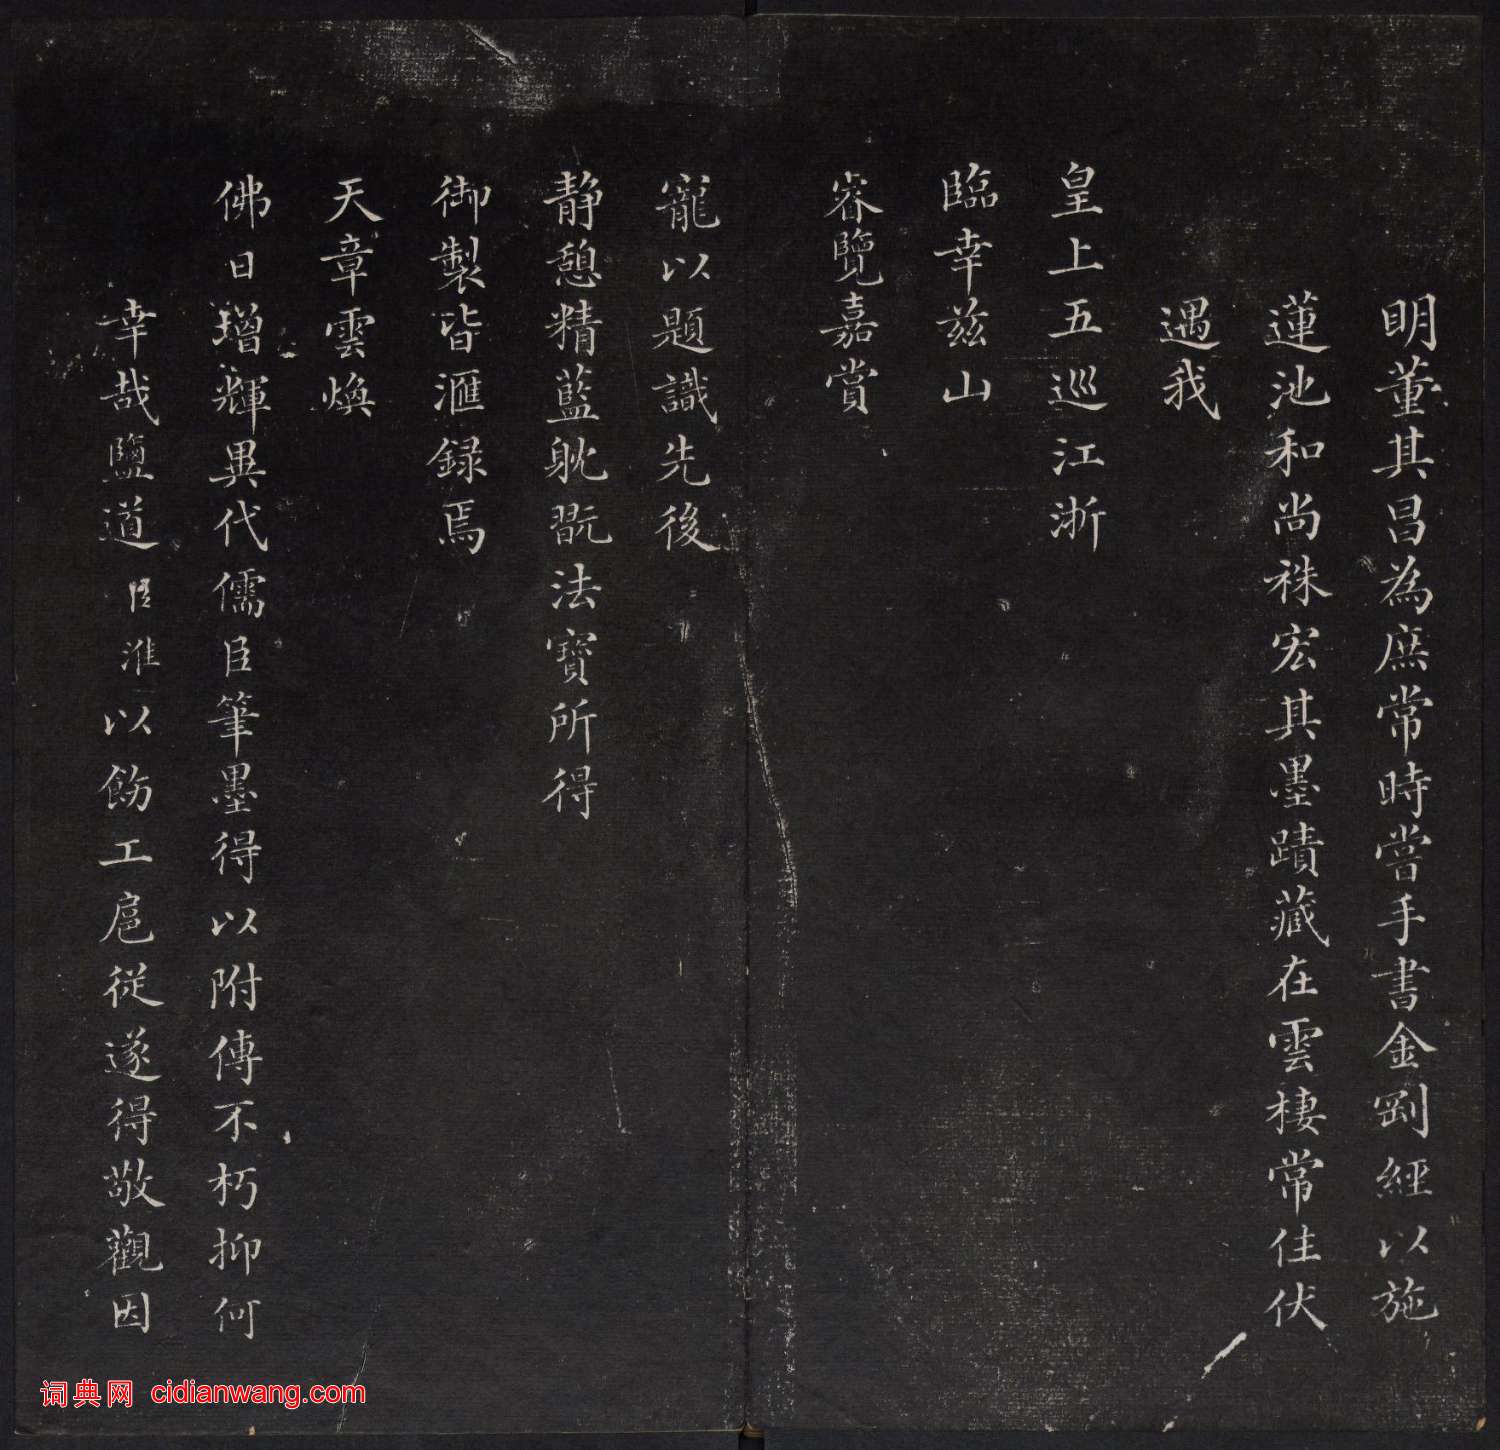 明董其昌為庶常時嘗手書金剛經以施
蓮池和尚袾宏其墨蹟藏在雲棲常住伏
遇我
皇上五巡江浙
臨幸兹山
睿覽嘉賞
寵以題識先後
静憩精藍躭翫法寶所得
御製皆滙録焉
天章雲煥
佛日增輝異代儒臣筆墨得以附傳不朽抑何
幸哉鹽道臣淮以飭工扈從遂得敬觀因
词典网 cidianwang.com